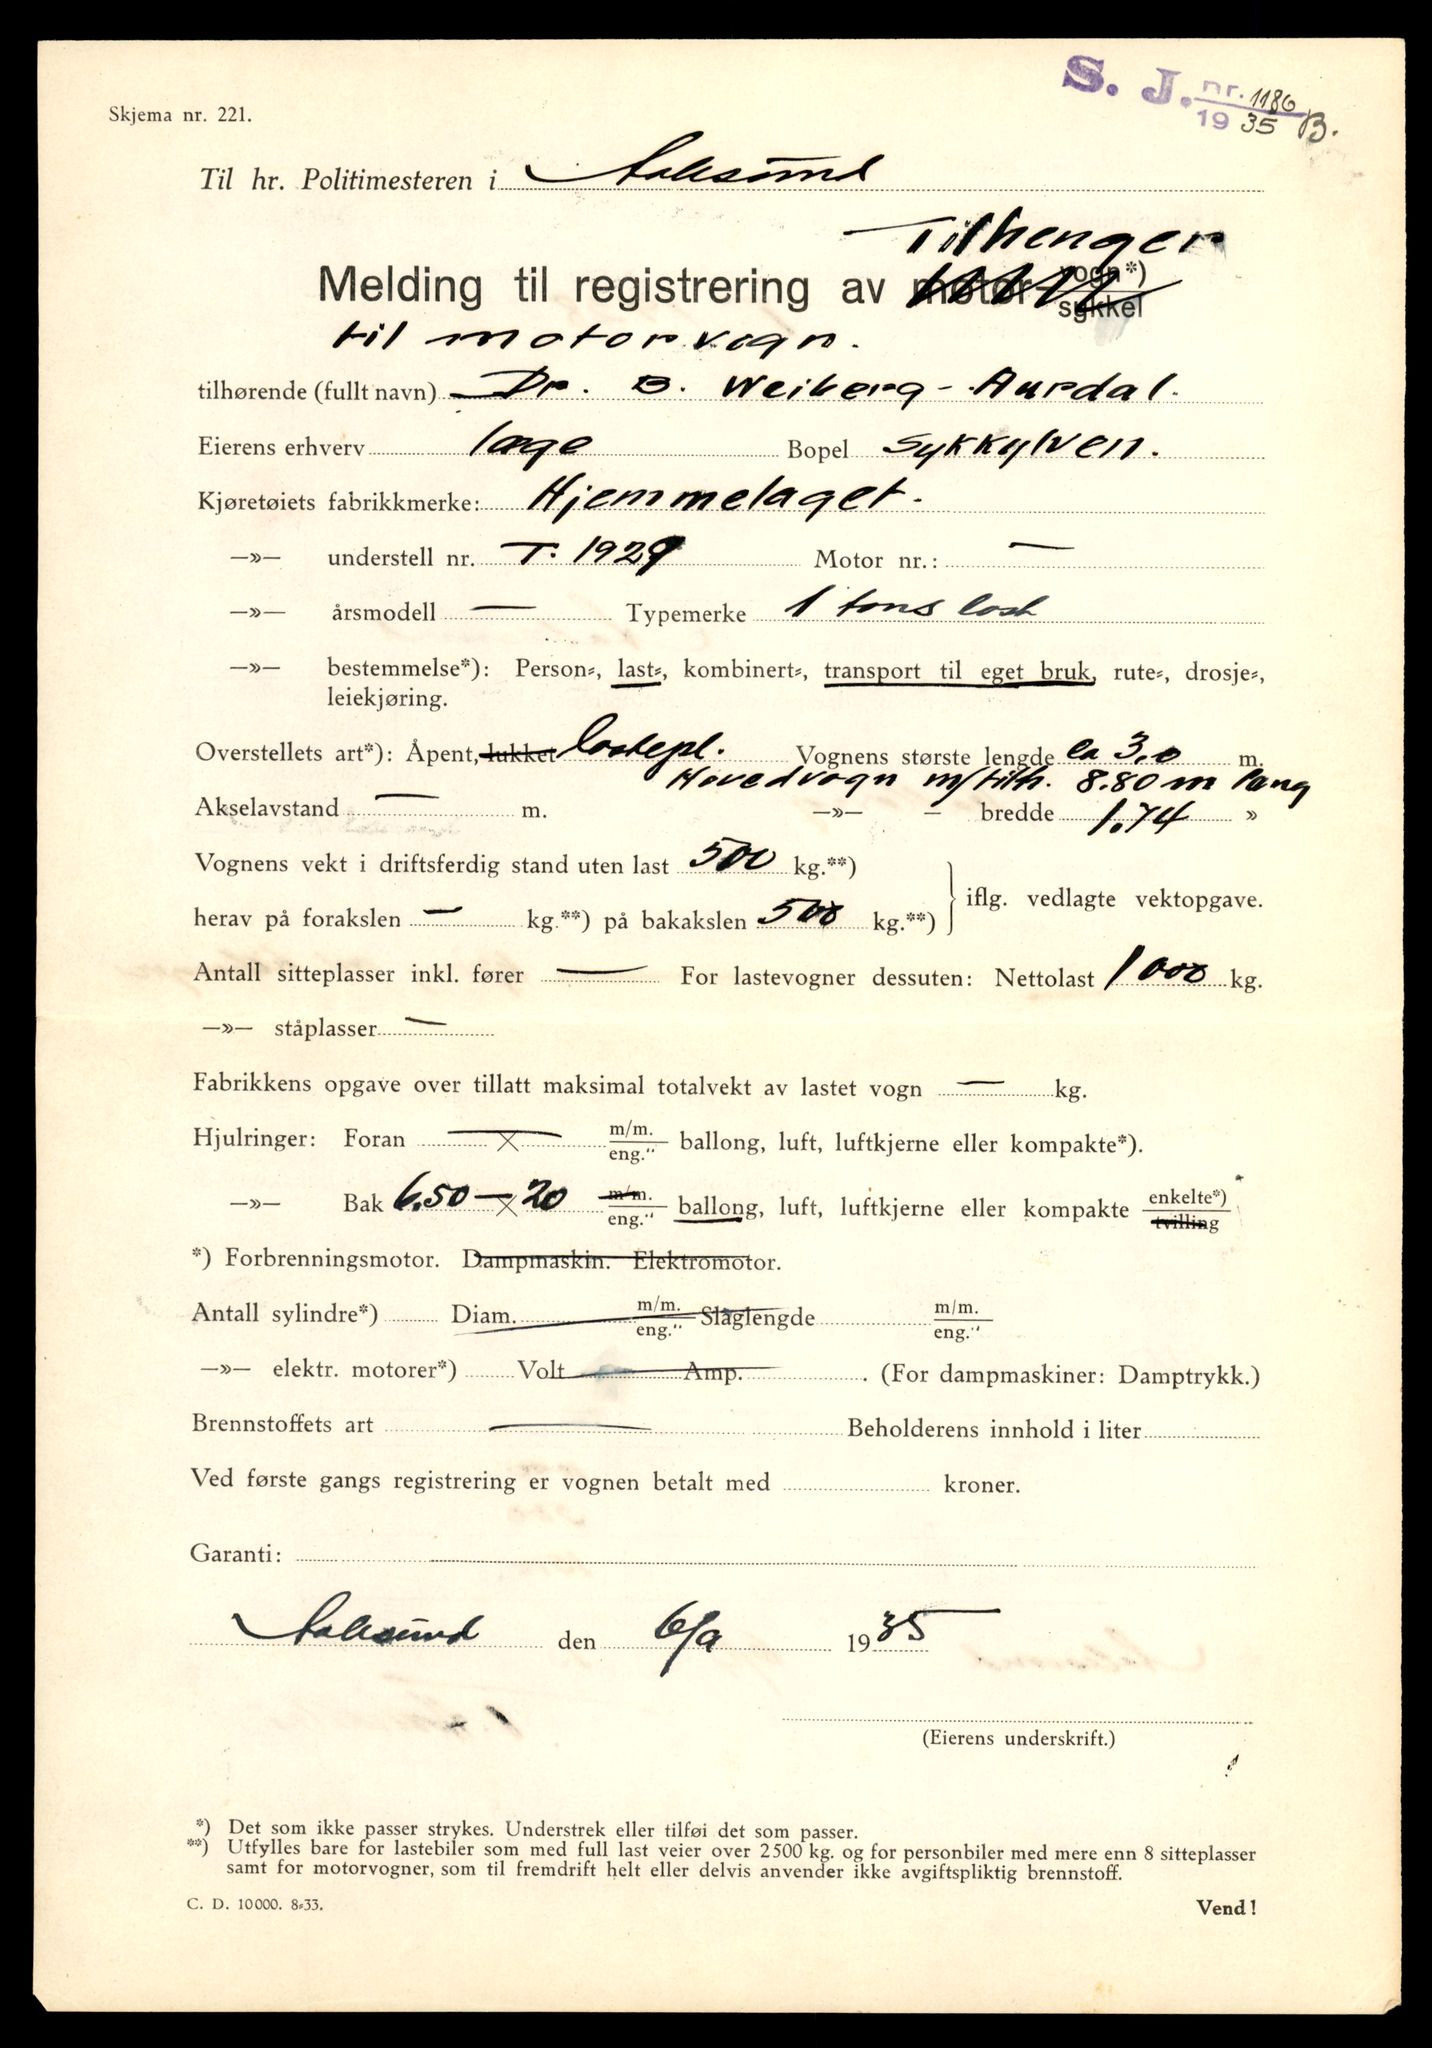 S. J. nr. 1186 B.
19 35
Skjema nr. 221.
Til hr. Politimesteren i Aalesund
Tilhenger
Melding til registrering av motor-vogn*) sykkel
til motorvogn.
tilhørende (fullt navn) Dr. B. Weiberg-Aurdal.
Eierens erhverv læge Bopel Sykkylven.
Kjøretøiets fabrikkmerke: Hjemmelaget.
—»— understell nr. T. 1929 Motor nr.: —
—»— årsmodell — Typemerke 1 tons last
—»— bestemmelse*): Person-, last-, kombinert-, transport til eget bruk, rute-, drosje-,
leiekjøring.
Overstellets art*): Åpent, lukket lastepl. Vognens største lengde ca 3.0 m.
Hovedvogn m/tilh. 8.80 m lang
Akselavstand — m. —»— – bredde 1.74 »
Vognens vekt i driftsferdig stand uten last 500 kg.**)
herav på forakslen — kg.**) på bakakslen 500 kg.**) iflg. vedlagte vektopgave.
Antall sitteplasser inkl. fører — For lastevogner dessuten: Nettolast 1000 kg.
—»— ståplasser —
Fabrikkens opgave over tillatt maksimal totalvekt av lastet vogn — kg.
Hjulringer: Foran — × m/m. eng." ballong, luft, luftkjerne eller kompakte*).
—»— Bak 6.50 — × 20 m/m. eng." ballong, luft, luftkjerne eller kompakte enkelte*) tvilling
*) Forbrenningsmotor. Dampmaskin. Elektromotor.
Antall sylindre*) Diam. m/m. eng." Slaglengde m/m. eng."
—»— elektr. motorer*) Volt Amp. . (For dampmaskiner: Damptrykk.)
Brennstoffets art — Beholderens innhold i liter
Ved første gangs registrering er vognen betalt med kroner.
Garanti:
Aalesund den 6/9 1935
(Eierens underskrift.)
*) Det som ikke passer strykes. Understrek eller tilføi det som passer.
**) Utfylles bare for lastebiler som med full last veier over 2500 kg. og for personbiler med mere enn 8 sitteplasser
samt for motorvogner, som til fremdrift helt eller delvis anvender ikke avgiftspliktig brennstoff.
C. D. 10000. 8-33. Vend!